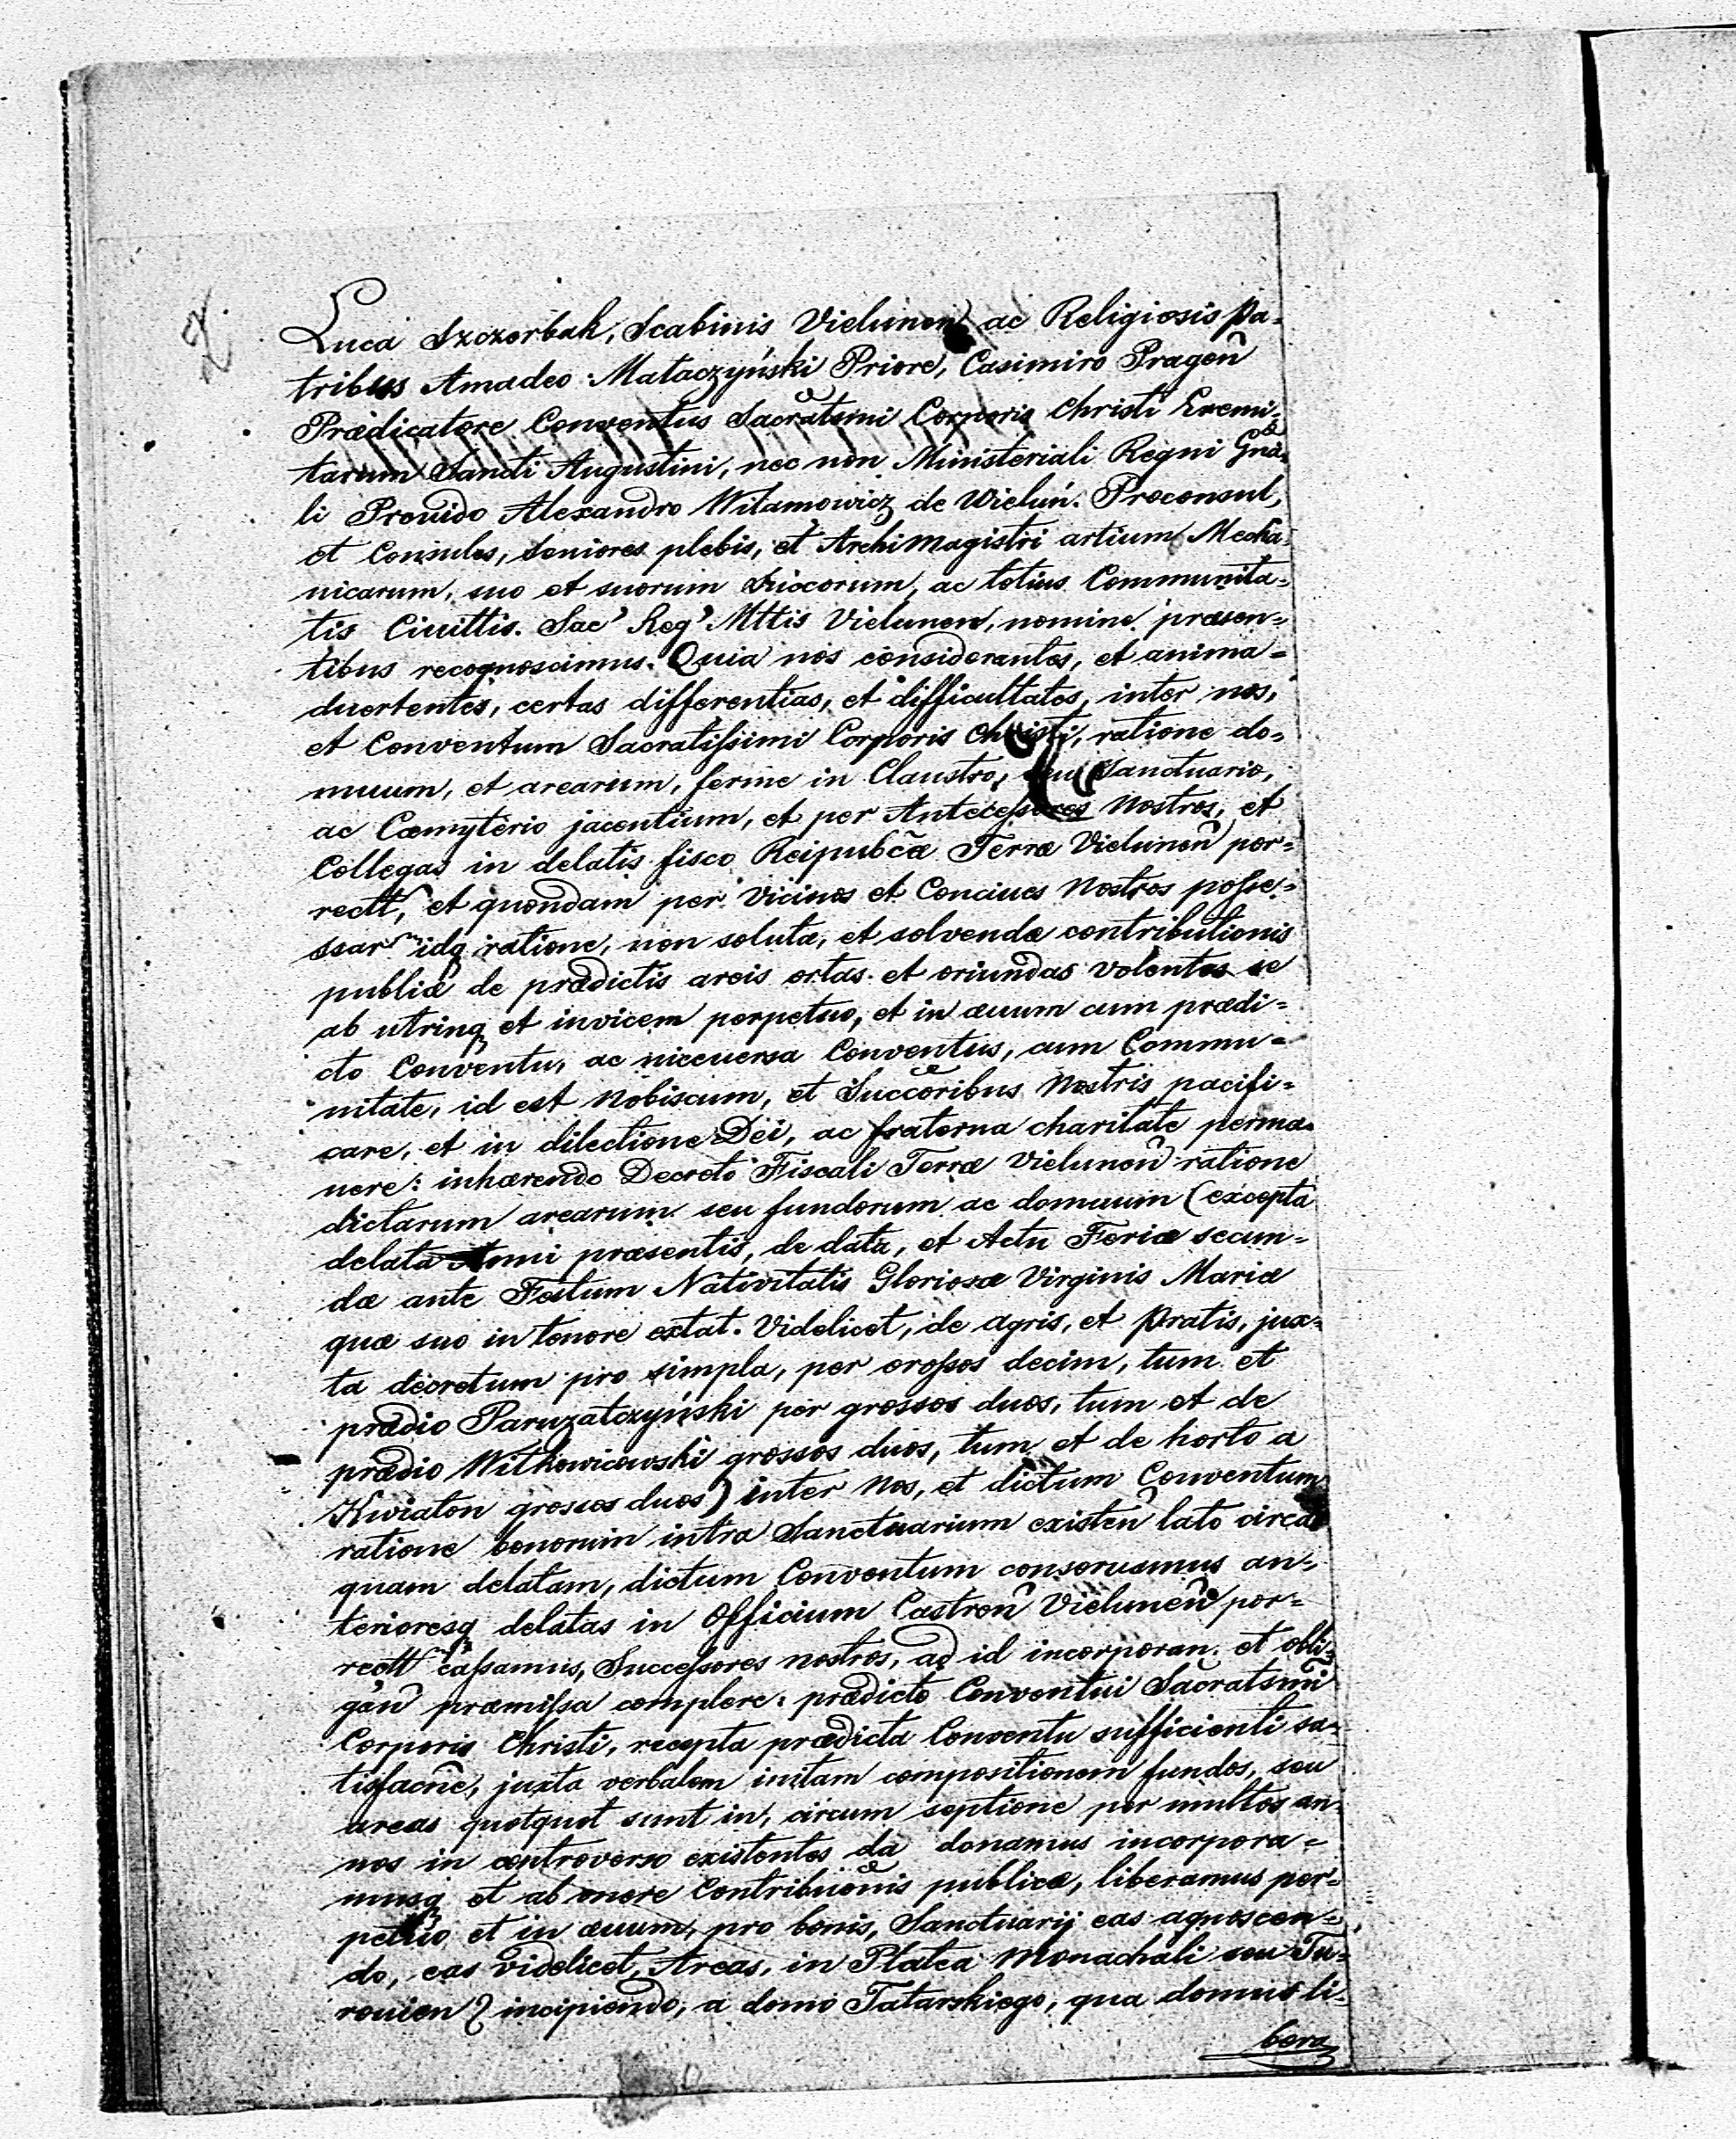 2.
Luca Szczerbak, Scabinis Vielunen ac Religiosis Pa-
tribus Amadeo Mataczyński Priore, Casimiro Pragen̄
Prædicatore Conventus Sacratsmi Corporis Christi Eremi-
tarum Sancti Augustini, nec non Ministeriali Regni Gna-
li Prouido Alexandro Witamowicz de Wieluń. Proconsul,
et Consules, Seniores plebis, et Archimagistri artium Mecha-
nicarum, suo et suorum Succorum, ac totius Communita-
tis Ciuittis. Sac' Reg' Mttis Vielunen, nomine præsen-
tibus recognoscimus. Quia nos considerantes, et anima-
duertentes, certas differentias, et difficultates, inter nos,
et Conventum Sacratissimi Corporis Christi, ratione do-
muum, et arearum, ferme in Claustro, seu Sanctuario,
ac Cœmyterio jacentium, et per Antecessores Nostros, et
Collegas in delatis fisco Reipubcæ Terræ Vielunen̄ por-
rectt, et quondam per Vicinos et Conciues Nostros posse-
ssar idq ratione, non solutæ, et solvendæ contributionis
publicæ de prædictis areis ortas et oriundas volentes se
ab utrinq et invicem perpetuo, et in æuum cum prædi-
cto Conventu, ac viceuersa Conventus, cum Commu-
nitate, id est Nobiscum, et Succoribus Nostris pacifi-
care, et in dilectione Dei, ac fraterna charitate perma-
nere: inhærendo Decreto Fiscali Terræ Vielunen̄ ratione
dictarum arearum seu fundorum ac domuum (excepta
delata Anni præsentis, de data, et Actu Feriæ secun-
dæ ante Festum Nativitatis Gloriosæ Virginis Mariæ
quæ suo in tenore extat. Videlicet, de agris, et Pratis, jux-
ta decretum pro simpla, per grossos decim, tum et
prædio Paruzatczyński per grossos duos, tum et de
prædio Witkowicowski grossos duos, tum et de horto a
Kwiaton grossos duos) inter Nos, et dictum Conventum
ratione bonorum intra Sanctuarium existen̄ lato circa
quam delatam, dictum Conventum conseruamus an-
terioresq delatas in Officium Castren̄ Vielunen̄ por-
rectt cassamus, Successores nostros, ad id incorporan. et obli-
gan̄ præmissa complere: prædicto Conventui Sacratsmi
Corporis Christi, recepta prædicta Conventu sufficienti sa-
tisfacne, juxta verbalem initam compositionem fundos, seu
areas quotquot sunt in, circum septione per multos an-
nos in controverso existentes da donamus incorpora-
musq et ab onere Contribuonis publicæ, liberamus per-
petuo et in æuum, pro bonis, Sanctuarij eas agnoscen-
do, eas videlicet, Areas, in Platea Monachali seu Tu-
rouien incipiendo, a domo Tatarskiego, qua domus li-
bera